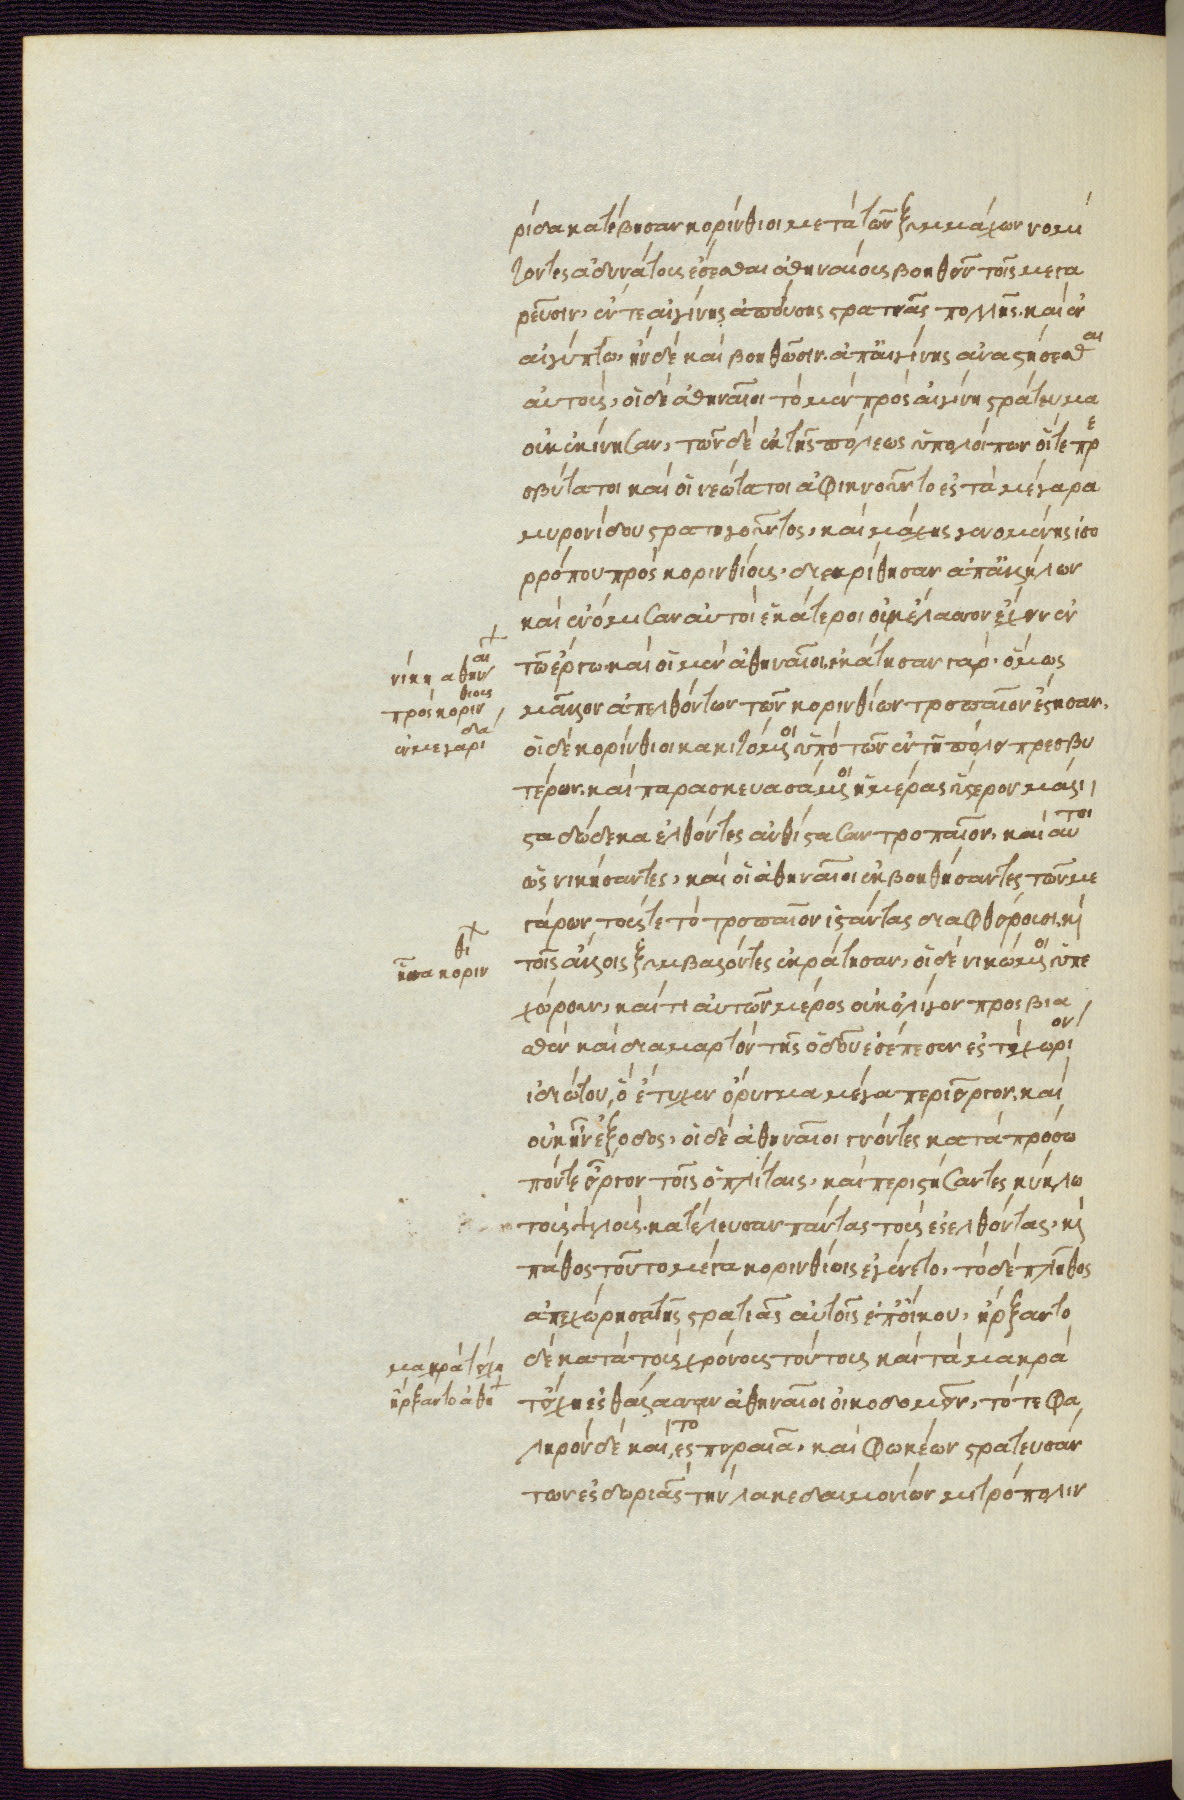 ρίδα κατέβησαν κορίνθιοι μετὰ τῶν ξυμμάχων νομί
ζοντες ἀδυνάτους ἔσεσθαι ἀθηναίους βοηθεῖν τοῖς μεγα
ρεῦσιν, ἔν τε αἰγίνῃ ἀπούσης στρατιᾶς πολλῆς. καὶ ἐν
αἰγύπτω, ἢν δὲ καὶ βοηθῶσιν. ἀπ' αἰγίνης ἀναστήσεσθαι
αὐτούς, οἱ δὲ ἀθηναῖοι τὸ μὲν πρὸς αἰγίνη στράτευμα
οὐκ ἐκίνησαν, τῶν δὲ ἐκ τῆς πόλεως ὑπολοίπων οἵ τε πρε
σβύτατοι καὶ οἱ νεώτατοι ἀφικνοῦντο ἐς τὰ μέγαρα
μυρωνίδου στρατηγοῦντος, καὶ μάχης γενομένης ἰσο
ρρόπου πρὸς κορινθίους, διεκρίθησαν ἀπ' ἀλλήλων
καὶ ἐνόμισαν αὐτοὶ ἑκάτεροι οὐκ ἔλασσον ἔχειν ἐν
τῶ ἔργω. καὶ οἱ μὲν ἀθηναῖοι, ἐκράτησαν γάρ. ὅμως
μᾶλλον ἀπελθόντων τῶν κορινθίων τροπαῖον ἔστησαν.
οἱ δὲ κορίνθιοι κακιζόμενοι ὑπὸ τῶν ἐν τῆ πόλει πρεσβυ
τέρων. καὶ παρασκευασάμενοι ἡμέρας ὕστερον μάλι
στα δώδεκα ἐλθόντες ἀνθίστασαν τροπαῖον, καὶ αὐτοὶ
ὡς νικήσαντες, καὶ οἱ ἀθηναῖοι ἐκβοηθήσαντες τῶν με
γάρων τούς τε τὸ τροπαῖον ἱστάντας διαφθείρουσι. καὶ
τοῖς ἄλλοις ξυμβαλόντες ἐκράτησαν, οἱ δὲ νικώμενοι ὑπε
χώρουν, καί τι αὐτῶν μέρος οὐκ ὀλίγον προσβια
σθὲν καὶ διαμαρτὸν τῆς ὁδοῦ ἐσέπεσεν ἔς του χωρίον
ἰδιώτου, ὃ ἔτυχεν ὄρυγμα μέγα περιεῖργον. καὶ
οὐκ ἦν ἔξοδος, οἱ δὲ ἀθηναῖοι γνόντες κατὰ πρόσω
πόν τε εἶργον τοῖς ὁπλίταις, καὶ περιστήσαντες κύκλω
τοὺς ψιλούς. κατέλευσαν πάντας τοὺς ἐσελθόντας, καὶ
πάθος τοῦτο μέγα κορινθίοις ἐγένετο, τὸ δὲ πλῆθος
ἀπεχώρησε τῆς στρατιᾶς αὐτοῖς ἐπ' οἴκου, ἤρξαντο
δὲ κατὰ τοὺς χρόνους τούτους καὶ τὰ μακρὰ
τείχη ἐς θάλασσαν ἀθηναῖοι οἰκοδομεῖν, τό τε φα
ληρόνδε καὶ, τὸ ἐς πειραιᾶ. καὶ φωκέων στρατευσάν
των ἐς δωριᾶς τὴν λακεδαιμονίων μητρόπολιν
νίκη ἀθηναί
πρὸς κορινθίους
ἐν μεγαρίδα
ἧττα κορινθί
μακρὰ τείχη
ἤρξαντο ἀθη